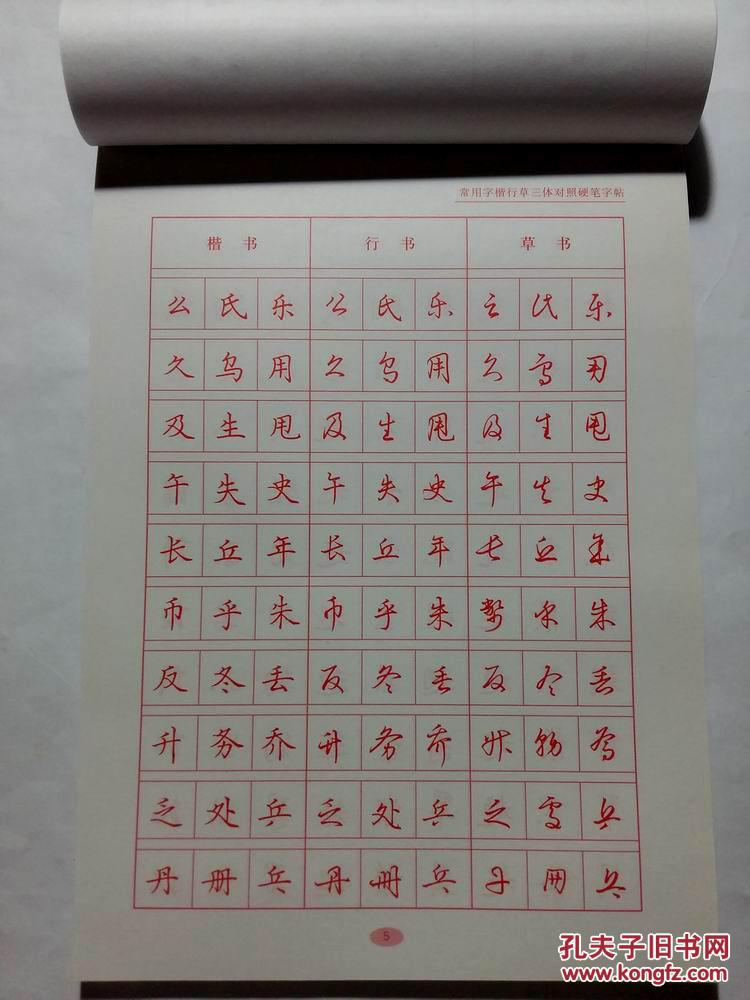 常用字楷行草三体对照硬笔字帖
楷书 行书 草书
么 氏 乐 么 氏 乐 么 氏 乐
久 鸟 用 久 鸟 用 久 鸟 用
及 生 甩 及 生 甩 及 生 甩
午 失 史 午 失 史 午 失 史
长 丘 年 长 丘 年 长 丘 年
币 乎 朱 币 乎 朱 幣 乎 朱
反 冬 丢 反 冬 丢 反 冬 丢
升 务 乔 升 务 乔 升 務 乔
乏 处 乒 乏 处 乒 乏 處 乒
丹 册 乓 丹 册 乓 丹 册 乓
5
孔夫子旧书网
www.kongfz.com